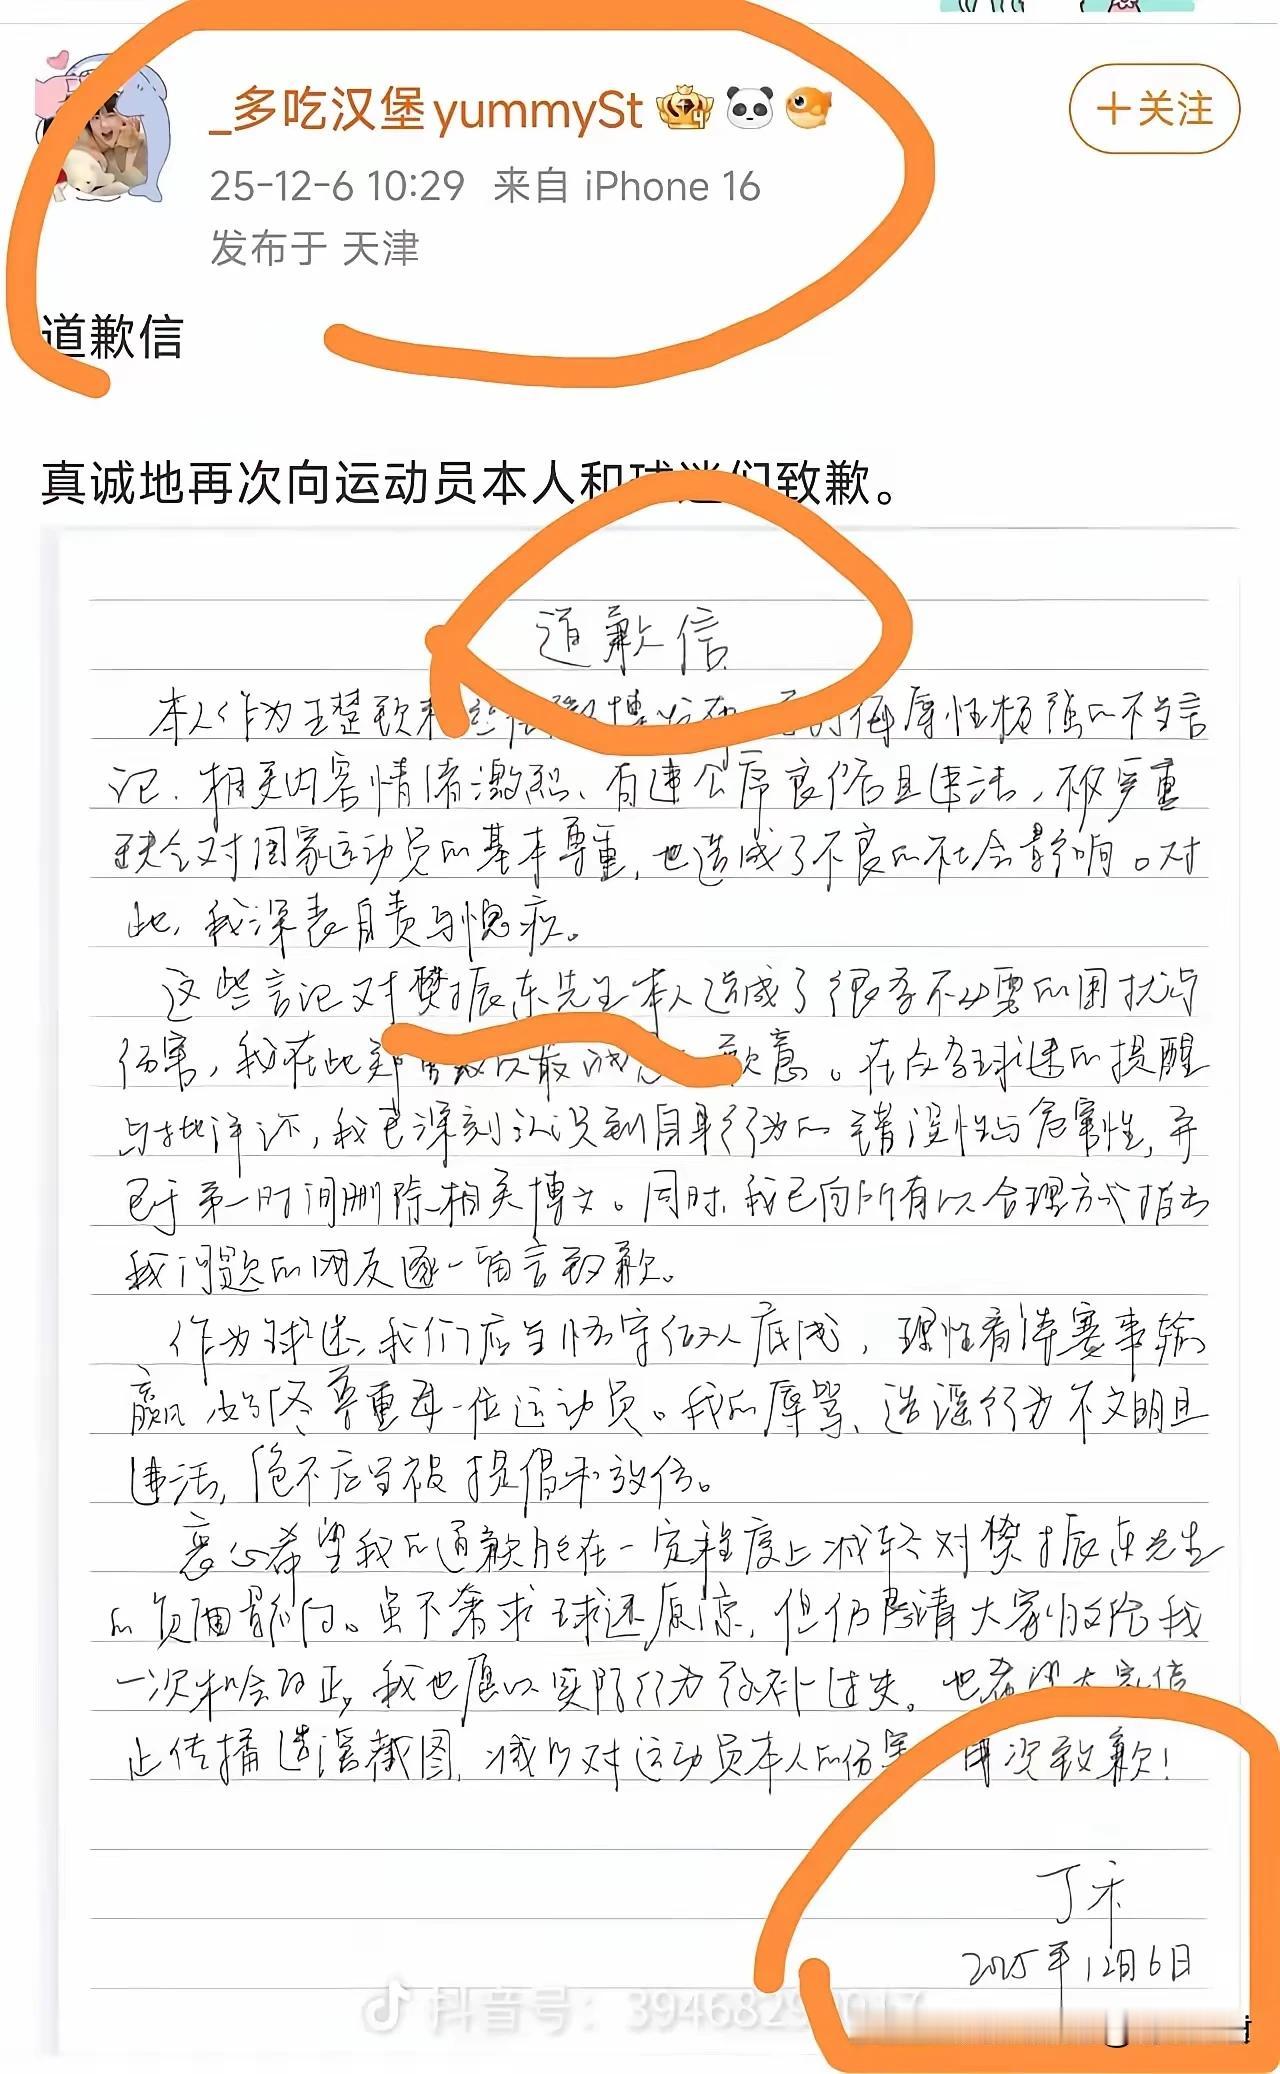 _多吃汉堡yummySt
＋关注
25-12-6 10:29 来自 iPhone 16
发布于 天津
道歉信
真诚地再次向运动员本人和球迷们致歉。
道歉信
本人作为王楚钦粉丝在微博发布侮辱性极强的不当言
记.相关内容情绪激烈、有违公序良俗且违法,不仅严重
缺乏对国家运动员的基本尊重,也造成了不良的社会影响。对
此,我深表自责与愧疚。
这些言记对樊振东先生本人造成了很多不必要的困扰与
伤害,我在此郑重致以最诚歉意。在众多球迷的提醒
与批评下,我已深刻认识到自身行为的错误性与危害性,并
已于第一时间删除相关博文。同时,我已向所有以合理方式指出
我问题的网友逐一留言致歉。
作为球迷,我们应当恪守做人底线,理性看待赛事输
赢,始终尊重每一位运动员。我的辱骂、造谣行为不文明且
违法,绝不应当被提倡和放仿。
衷心希望我的道歉能在一定程度上减轻对樊振东先生
的负面影响。虽不奢求球迷原谅,但仍恳请大家能给我
一次机会改正,我也愿以实际行为弥补过失。也希望大家停
止传播造谣截图,减少对运动员本人的伤害再次致歉!
丁禾
2025年12月6日
抖音号: